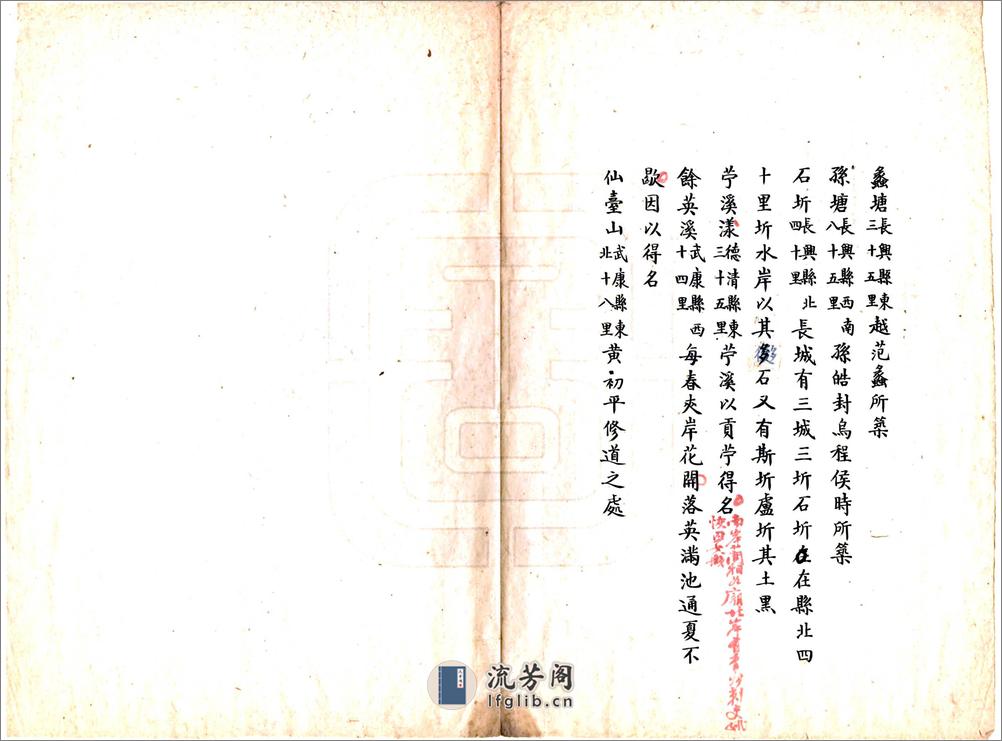 蠡塘長興縣東三十五里越范蠡所築
孫塘長興縣西南八十五里孫皓封烏程侯時所築
石圻長興縣北四十里長城有三城三圻石圻在在縣北四
十里圻水岸以其多石又有斯圻盧圻其土黑
苧溪漾德清縣東三十五里苧溪以貢苧得名
餘英溪武康縣西十四里每春夾岸花開落英滿池通夏不
歇因以得名
仙臺山武康縣東北十八里黄初平修道之處
流芳阁
lfglib.cn